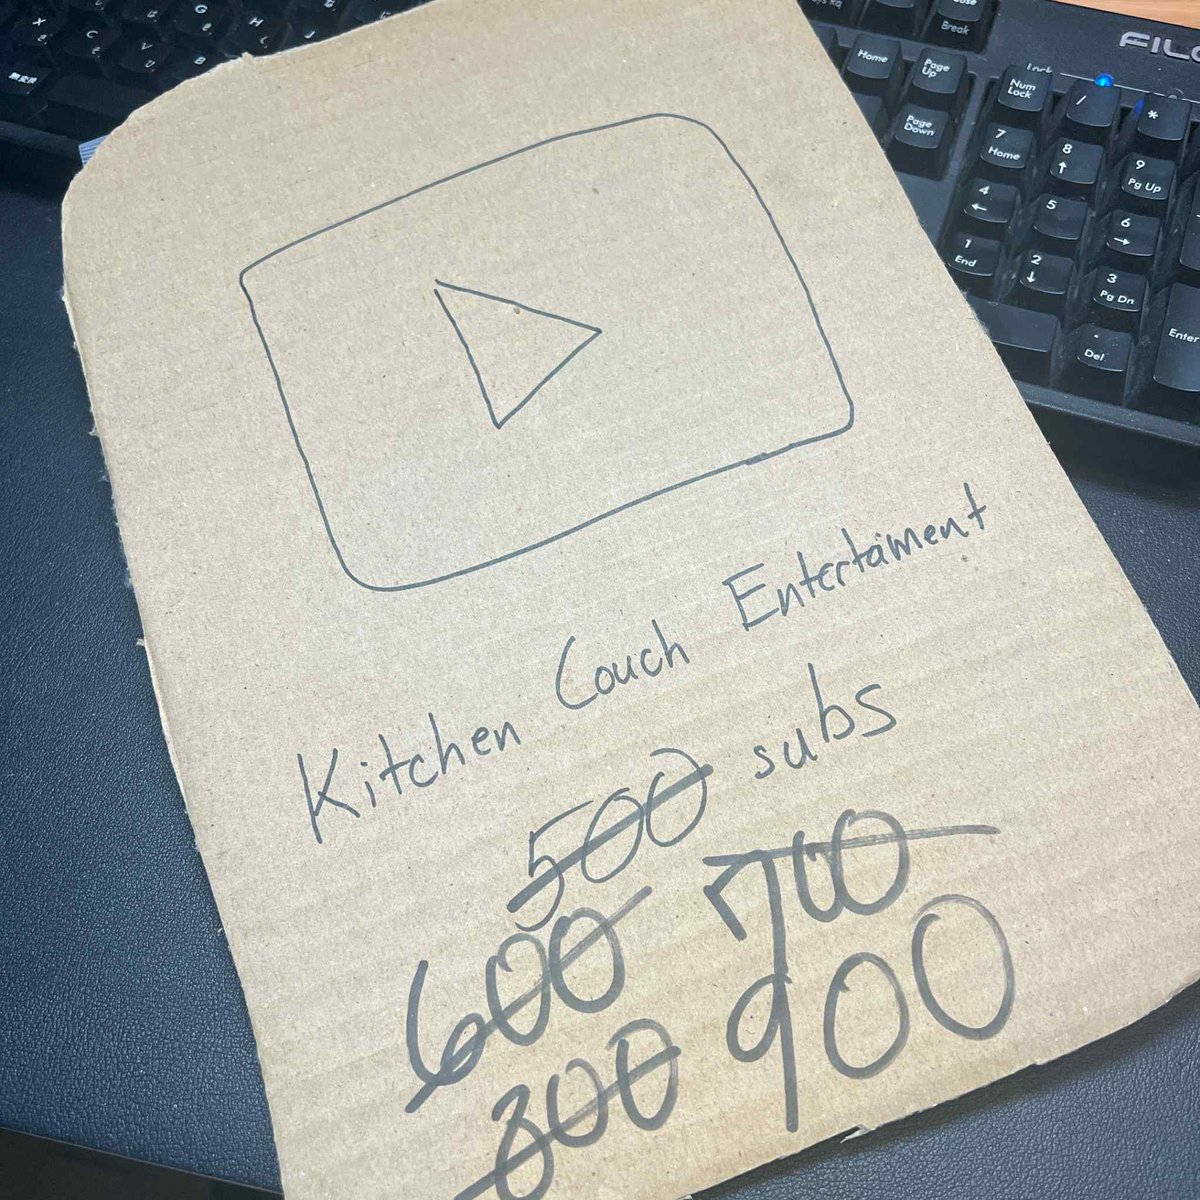 X
C
V
G
B
H
J
無変換
Break
Home
Page Up
Page Down
Lock
FIL
Num Lock
/
*
7 Home
8 ↑
9 Pg Up
4 ←
5
6 →
1 End
2 ↓
3 Pg Dn
. Del
Enter
Kitchen Couch Entertaiment
500 subs
600 700
800 900